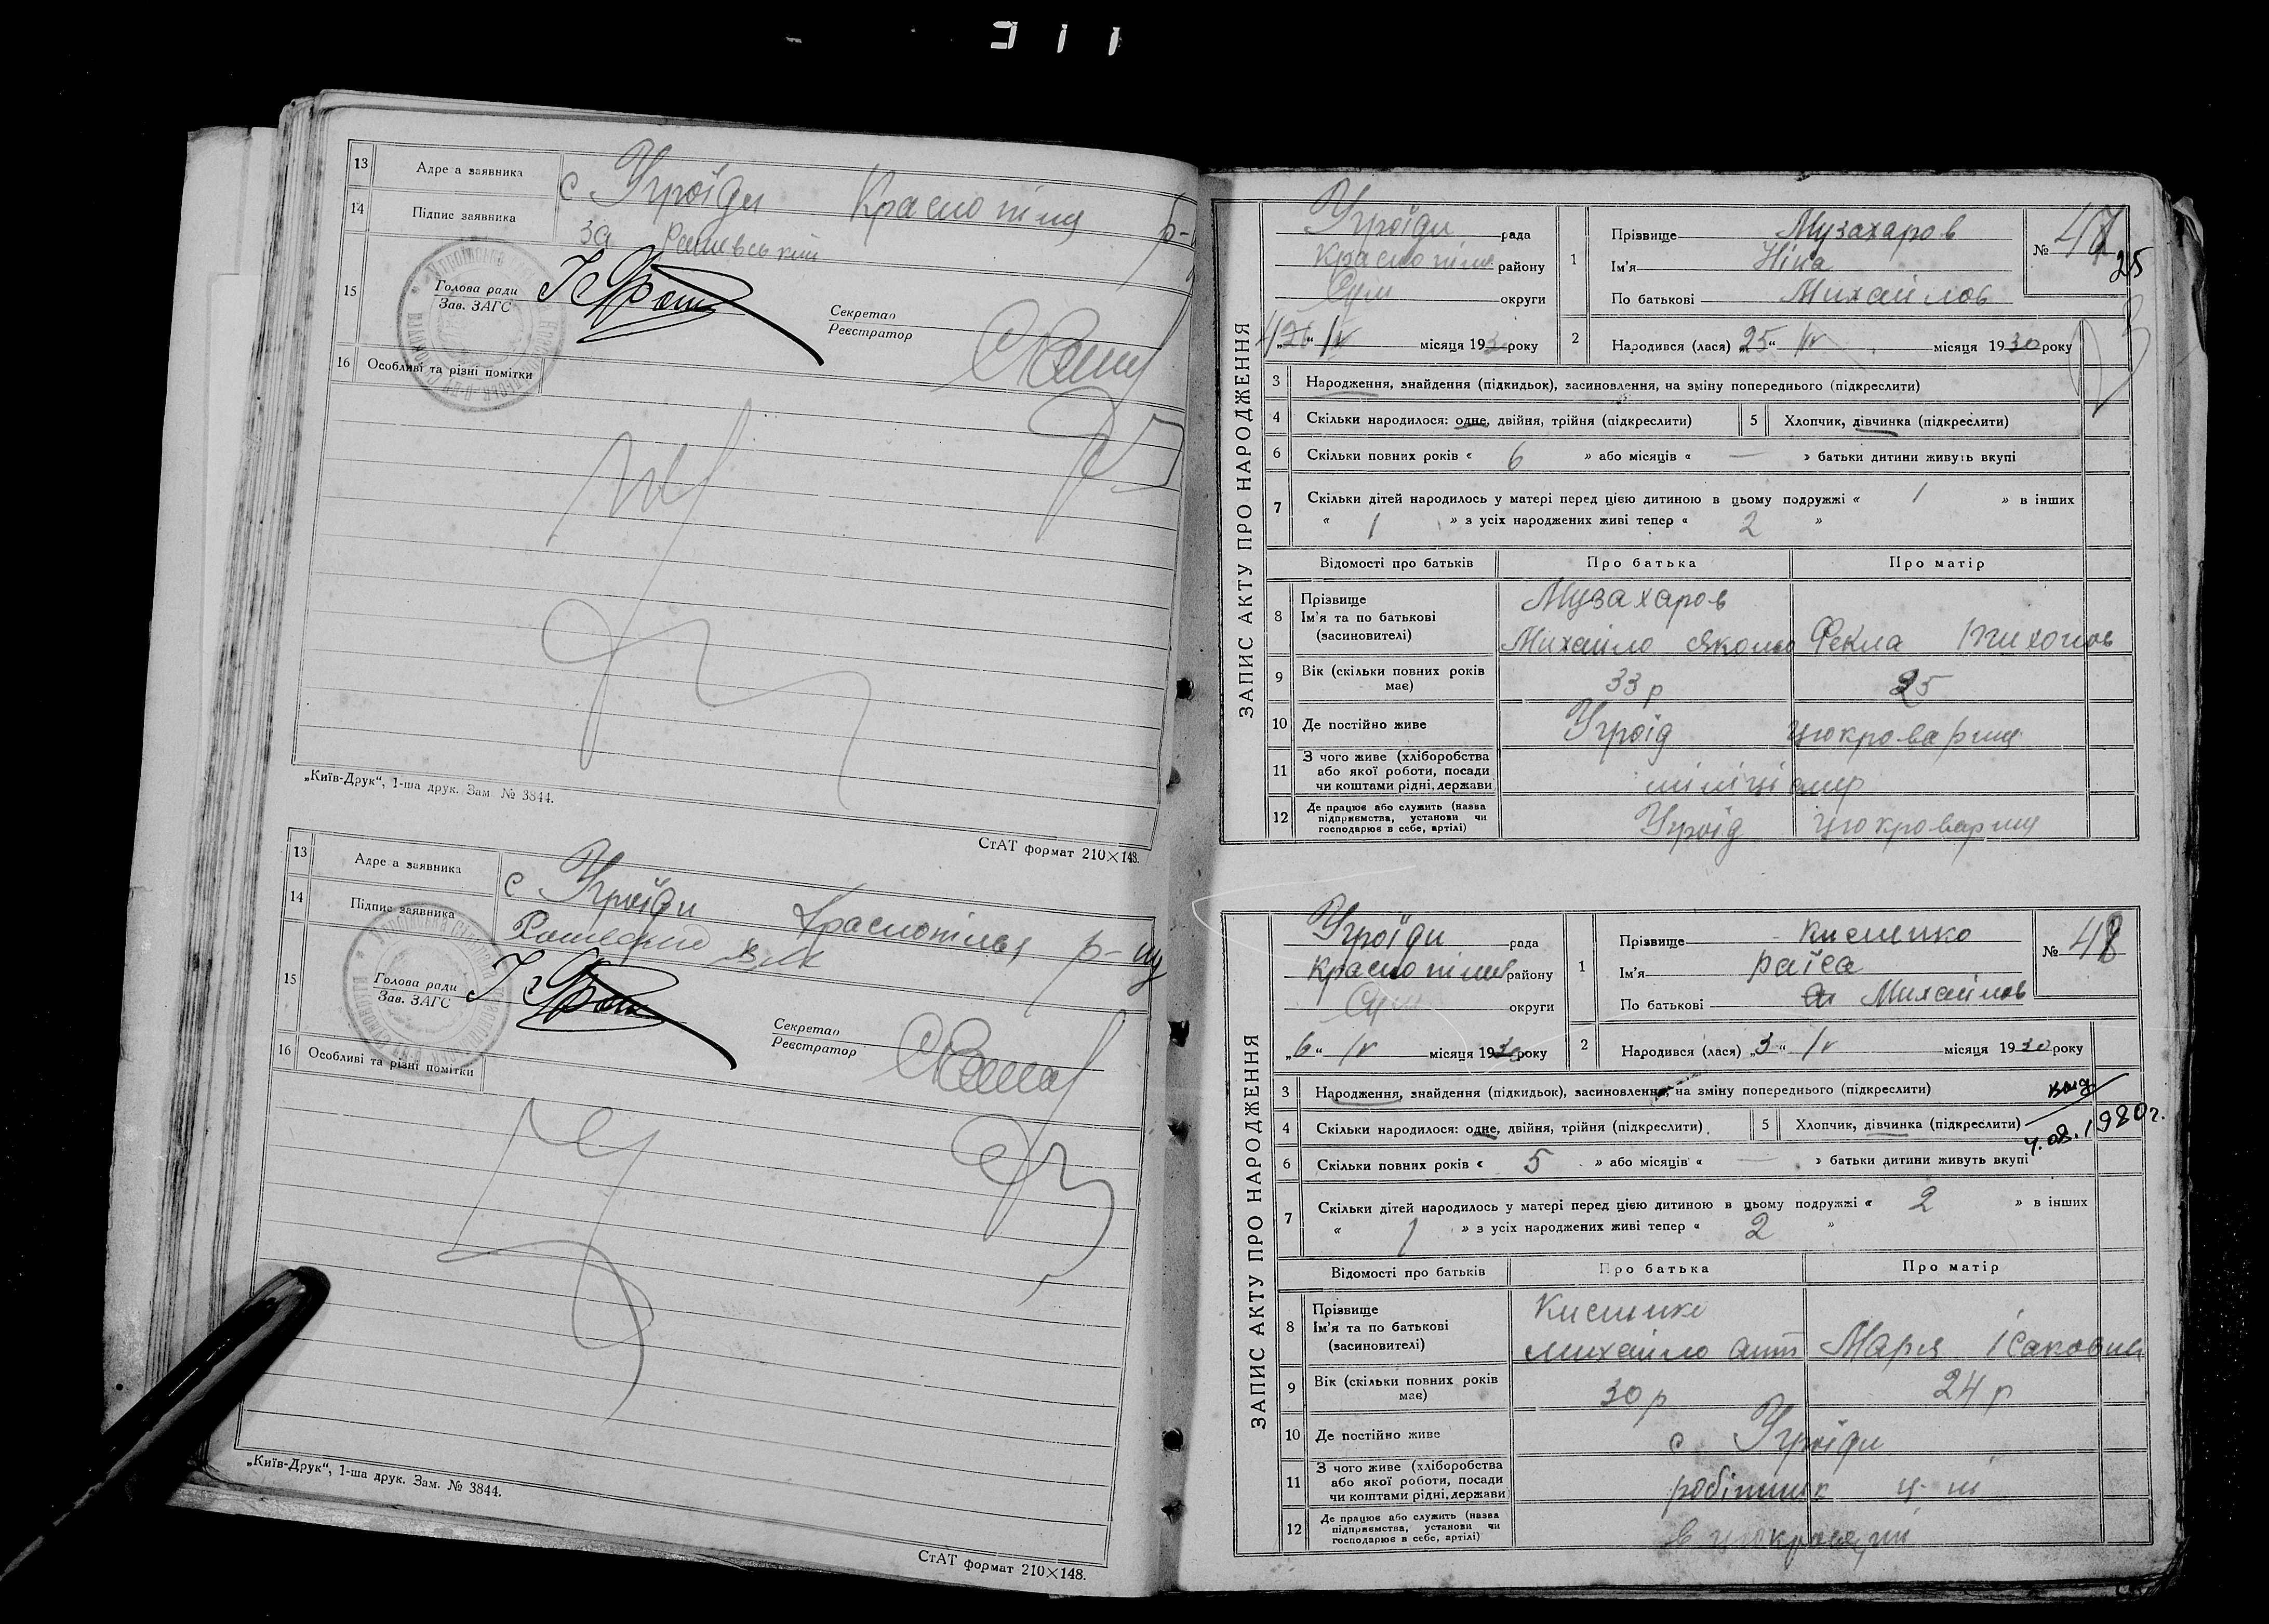 13 Адре а заявника с Угроїди Краснопіля р-
14 Підпис заявника за Рашевський
15 Голова ради
Зав. ЗАГС
Секретар
Реєстратор
16 Особливі та різні помітки
„Київ-Друк“, 1-ша друк. Зам № 3844.
СтАТ формат 210×148.
13 Адре а заявника с Угроїди Краснопілья р-ну
14 Підпис заявника
15 Голова ради
Зав. ЗАГС
Секретар
Реєстратор
16 Особливі та різні помітки
„Київ-Друк“, 1-ша друк. Зам. № 3844.
СтАТ формат 210×148.
ЗАПИС АКТУ ПРО НАРОДЖЕННЯ
Угроїди рада
Краснопіля району
Сум округи
„26“ IV місяця 1930 року
1 Прізвище Музахаров
Ім'я Ніка
По батькові Михайлов
№ 47
25
2 Народився (лася) „25“ IV місяця 1930 року
3 Народження, знайдення (підкидьок), засиновлення, на зміну попереднього (підкреслити)
4 Скільки народилося: одне, двійня, трійня (підкреслити) 5 Хлопчик, дівчинка (підкреслити)
6 Скільки повних років « 6 » або місяців « — » батьки дитини живуть вкупі
7 Скільки дітей народилось у матері перед цією дитиною в цьому подружжі « 1 » в інших
« 1 » з усіх народжених живі тепер « 2 »
Відомості про батьків Про батька Про матір
8 Прізвище
Ім'я та по батькові
(засиновителі)
Музахаров
Михайло Яковл Фекла Тихонов
9 Вік (скільки повних років
має) 33 р 25
10 Де постійно живе Угроїд цюкроварня
11 З чого живе (хліборобства
або якої роботи, посади
чи коштами рідні, держави
міліціонер
12 Де працює або служить (назва
підприємства, установи чи
господарює в себе, артілі)
Угроїд цюкроварня
ЗАПИС АКТУ ПРО НАРОДЖЕННЯ
Угроїди рада
Краснопілля району
Сум округи
„6“ IV місяця 1930 року
1 Прізвище Кисленко
Ім'я раїса
По батькові Михайлов
№ 48
2 Народився (лася) „3“ IV місяця 1930 року
3 Народження, знайдення (підкидьок), засиновлення, на зміну попереднього (підкреслити)
4 Скільки народилося: одне, двійня, трійня (підкреслити) 5 Хлопчик, дівчинка (підкреслити)
4.08.1980г.
6 Скільки повних років « 5 » або місяців « — » батьки дитини живуть вкупі
7 Скільки дітей народилось у матері перед цією дитиною в цьому подружжі « 2 » в інших
« 1 » з усіх народжених живі тепер « 2 »
Відомості про батьків Про батька Про матір
8 Прізвище
Ім'я та по батькові
(засиновителі)
Кисленко
Михайло Ант Марія Ісаковна
9 Вік (скільки повних років
має) 30 р 24 р
10 Де постійно живе с Угроїди
11 З чого живе (хліборобства
або якої роботи, посади
чи коштами рідні, держави
робітник
12 Де працює або служить (назва
підприємства, установи чи
господарює в себе, артілі)